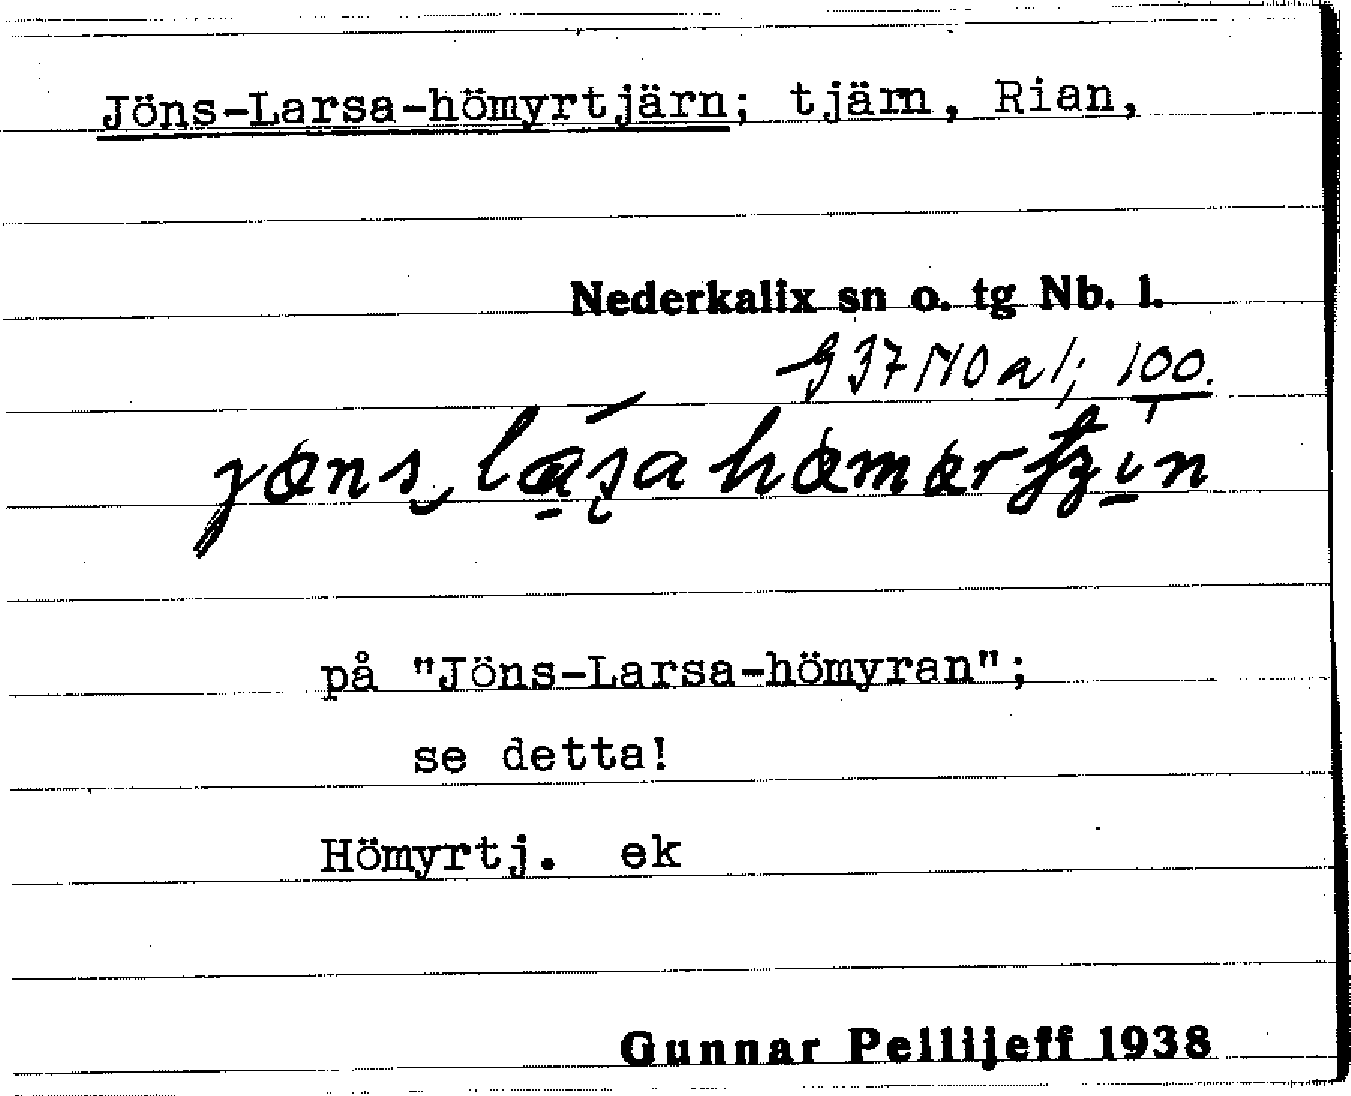 Jöns-Larsa-hömyrtjärn; tjärn, Rian,
Nederkalix sn o. tg Nb. l.
G 37 NO a 1; 100.
på "Jöns-Larsa-hömyran";
se detta!
Hömyrtj. ek
Gunnar Pellijeff 1938